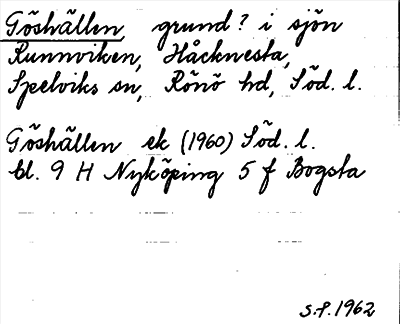 Göshällen, grund? i sjön
Runnviken, Håcknesta,
Spelviks sn, Rönö hd, Söd. l.
Göshällen ek (1960) Söd. l.
bl. 9 H Nyköping 5 f Bogsta
S.P. 1962